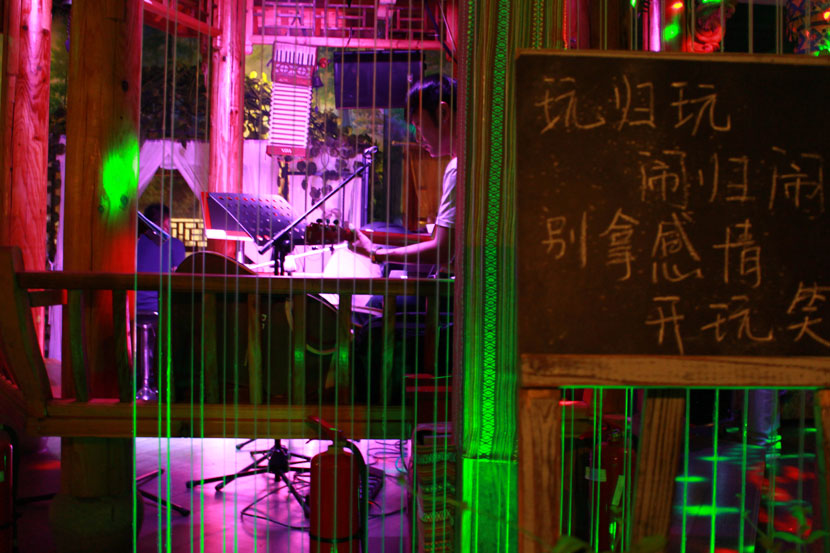 玩归玩
闹归闹
别拿感情
开玩笑